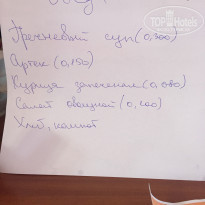 Обед
Гречневый суп (0,300)
Артек (0,150)
Курица запеченная (0,080)
Салат овощной (0,100)
Хлеб, компот